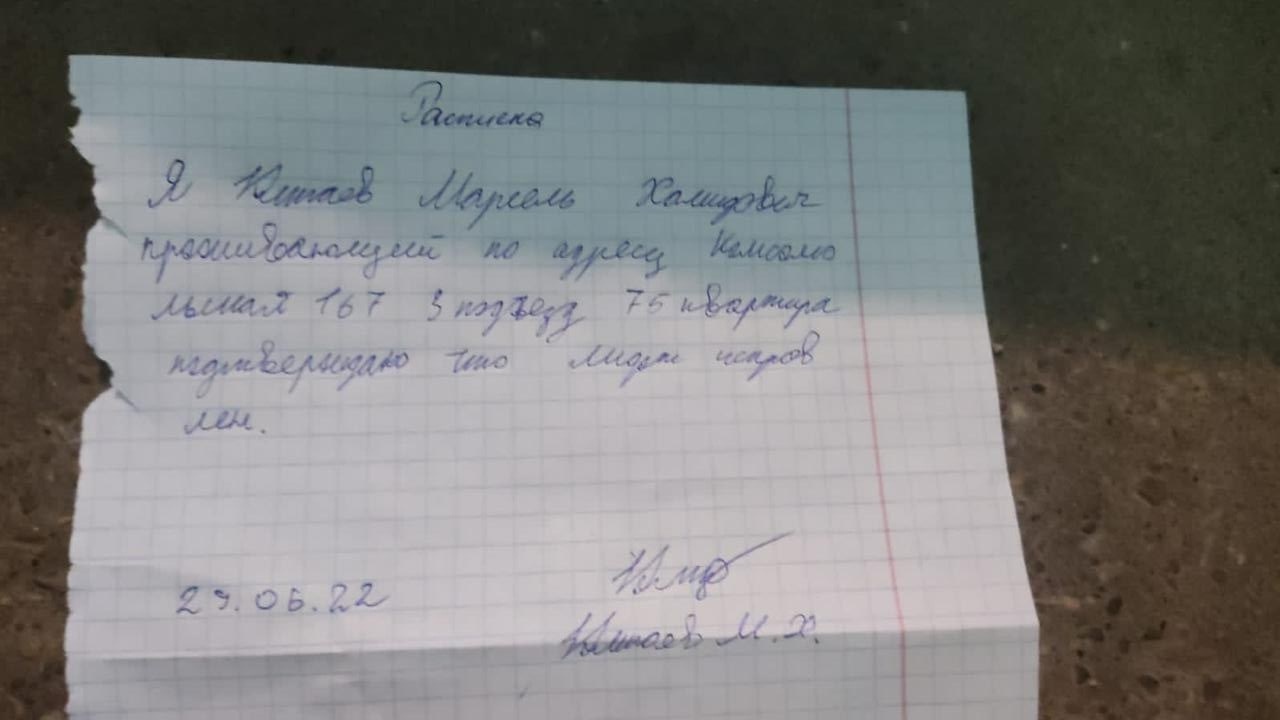 Расписка
Я Китаев Марсель Халидович
проживающий по адресу Комсомо
льская 167 3 подъезд 75 квартира
подтверждаю что лифт исправ
лен.
29.06.22
Китаев М.Х.